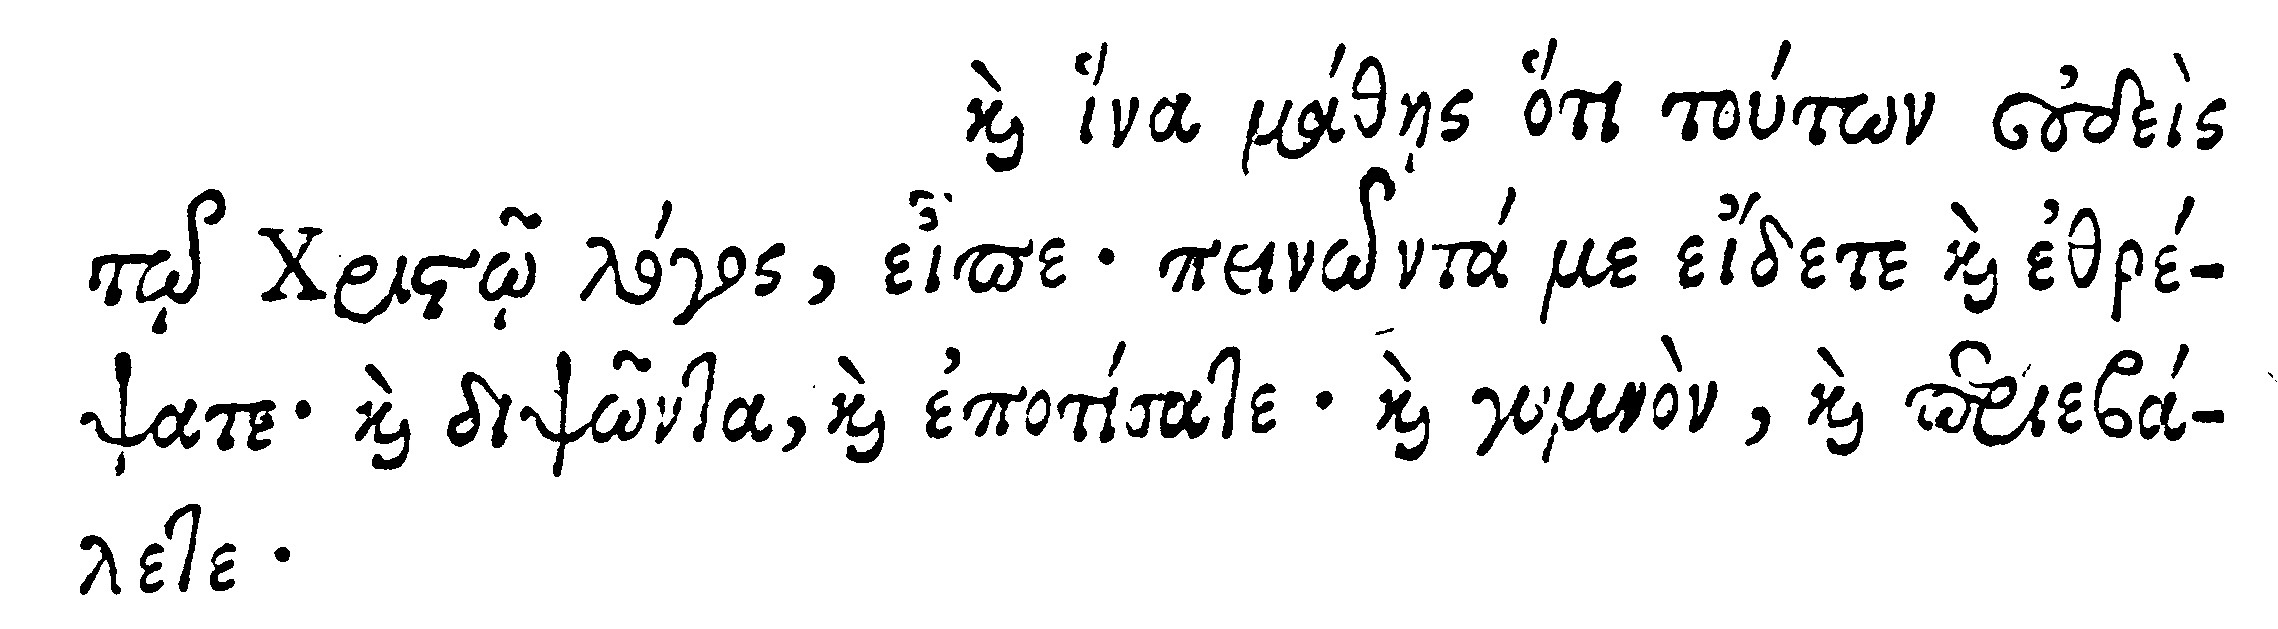 καὶ ἵνα μάθῃς ὅτι τούτων οὐδεὶς
τῷ Χριστῷ λόγος, εἶπε· πεινῶντά με εἴδετε καὶ ἐθρέ-
ψατε· καὶ διψῶντα, καὶ ἐποτίσατε· καὶ γυμνὸν, καὶ περιεβά-
λετε·